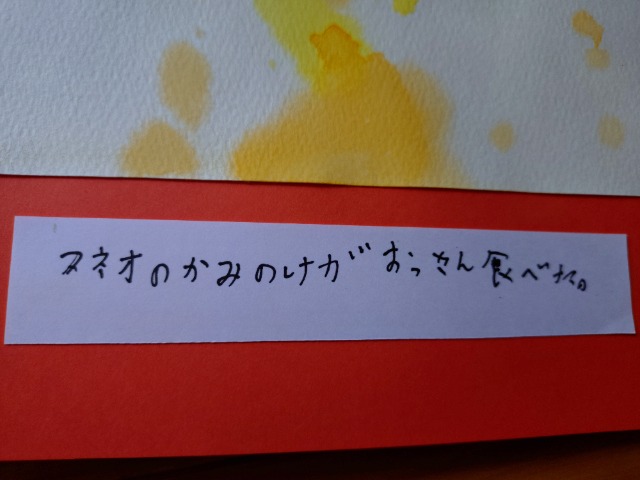 スネオのかみのけがおっさん食べた。